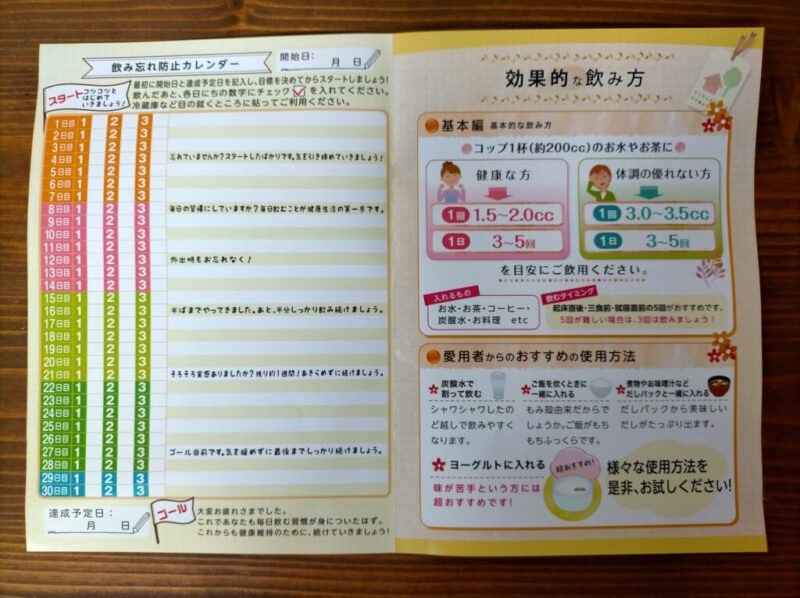 飲み忘れ防止カレンダー
開始日:
月 日
スタート
コツコツと
はじめて
いきましょう!
最初に開始日と達成予定日を記入し、目標を決めてからスタートしましょう!
飲んだあと、各日にちの数字にチェック ✓ を入れてください。
冷蔵庫など目の就くところに貼ってご利用ください。
1日目 1 2 3
2日目 1 2 3
3日目 1 2 3
4日目 1 2 3 忘れていませんか?スタートしたばかりです。気を引き締めていきましょう!
5日目 1 2 3
6日目 1 2 3
7日目 1 2 3
8日目 1 2 3 毎日の習慣にしていますか?毎日飲むことが健康生活の第一歩です。
9日目 1 2 3
10日目 1 2 3
11日目 1 2 3
12日目 1 2 3 外出時もお忘れなく!
13日目 1 2 3
14日目 1 2 3
15日目 1 2 3
16日目 1 2 3 半ばまでやってきました。あと、半分しっかり飲み続けましょう。
17日目 1 2 3
18日目 1 2 3
19日目 1 2 3
20日目 1 2 3
21日目 1 2 3 そろそろ実感ありましたか?残り約1週間!あきらめずに続けましょう。
22日目 1 2 3
23日目 1 2 3
24日目 1 2 3
25日目 1 2 3
26日目 1 2 3
27日目 1 2 3 ゴール目前です。気を緩めずに最後までしっかり続けましょう。
28日目 1 2 3
29日目 1 2 3
30日目 1 2 3
達成予定日:
月 日
ゴール
大変お疲れさまでした。
これであなたも毎日飲む習慣が身についたはず。
これからも健康維持のために、続けていきましょう!
効果的な飲み方
基本編 基本的な飲み方
コップ1杯(約200cc)のお水やお茶に
健康な方
1回 1.5~2.0cc
1日 3~5回
体調の優れない方
1回 3.0~3.5cc
1日 3~5回
を目安にご飲用ください。
入れるもの
お水・お茶・コーヒー・
炭酸水・お料理 etc
飲むタイミング
起床直後・三食前・就寝直前の5回がおすすめです。
5回が難しい場合は、3回は飲みましょう!
愛用者からのおすすめの使用方法
炭酸水で
割って飲む
シャワシャワしたの
ど越しで飲みやすく
なります。
ご飯を炊くときに
一緒に入れる
もみ殻由来だからで
しょうか。ご飯がもち
もちふっくらです。
煮物やお味噌汁など
だしパックと一緒に入れる
だしパックから美味しい
だしがたっぷり出ます。
ヨーグルトに入れる
味が苦手という方には
超おすすめです!
超おすすめ!
様々な使用方法を
是非、お試しください!